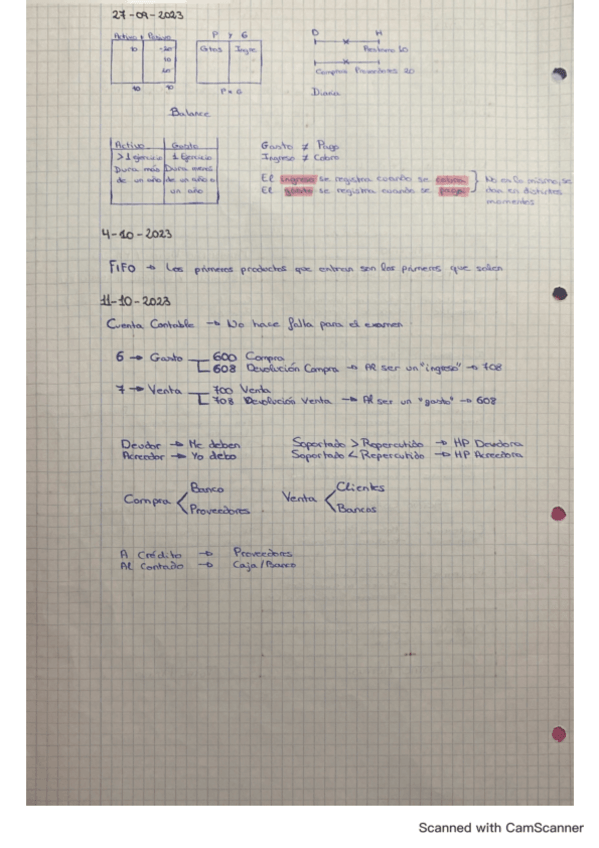 27-09-2023
Activo y Pasivo
P y G
D H
10
Gtos Ingre
10
10 P=G
Compras Proveedores 20
Diario
Balance
Activo Gasto
>1 ejercicio 1 Ejercicio
Dura más Dura menos
de un año de un año o
un año
Gasto ≠ Pago
Ingreso ≠ Cobro
El ingreso se registra cuando se cobra
El gasto se registra cuando se paga
No es lo mismo, se
dan en distintos
momentos
4-10-2023
FIFO → Los primeros productos que entran son los primeros que salen
11-10-2023
Cuenta Contable → No hace falta para el examen
6 → Gasto 600 Compra
608 Devolución Compra → Al ser un "ingreso" → 708
7 → Venta 700 Venta
708 Devolución Venta → Al ser un "gasto" → 608
Deudor → Me deben Soportado > Repercutido → HP Deudora
Acreedor → Yo debo Soportado < Repercutido → HP Acreedora
Banco Clientes
Compra Venta
Proveedores Bancos
A Crédito → Proveedores
Al Contado → Caja/Banco
Scanned with CamScanner